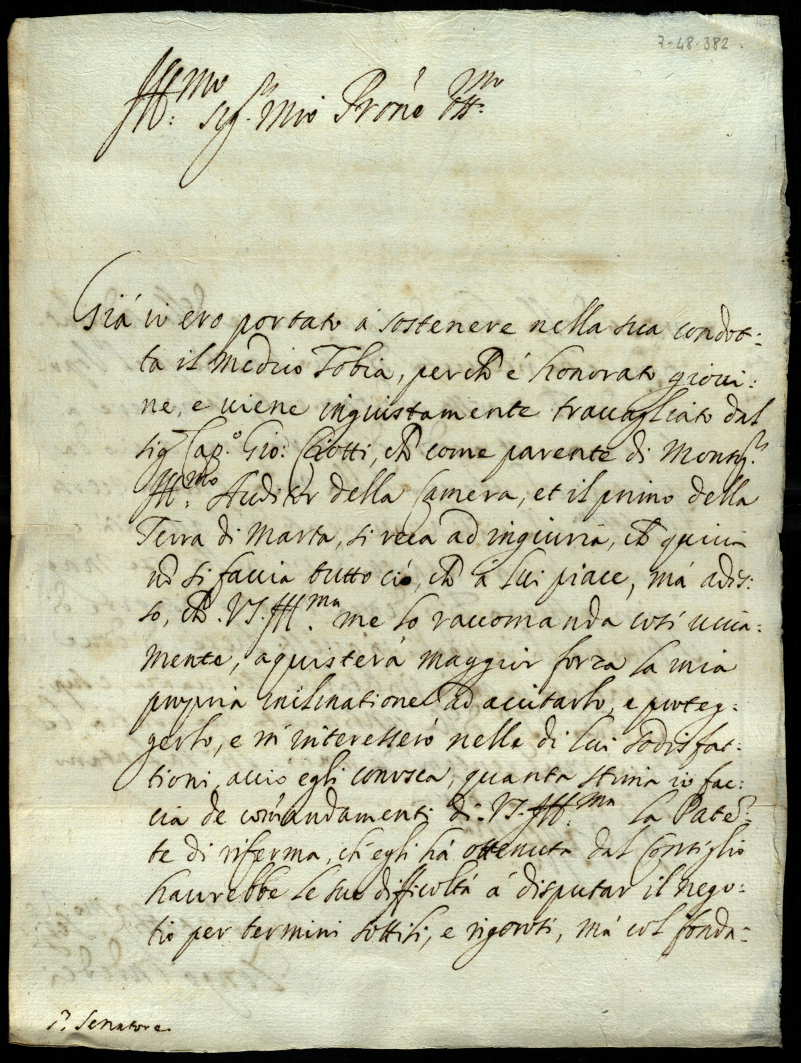 7-48-382.
Ill.mo Sig.r mio Pron̄e Oss.mo
Già io ero portato à sostenere nella sua condot-
ta il Medico Tobia, perch'è honorato giovi-
ne, e viene ingiustamente travagliato dal
Sig.r Cap.o Gio: Ciotti, ch̄ come parente di Mons.r
Ill.mo Auditor della Camera, et il primo della
Terra di Marta, si reca ad ingiuria, ch̄ quivi
nō si faccia tutto ciò, ch̄ à lui piace, mà ades-
so, ch̄ V.S. Ill.ma me lo raccomanda così viva-
mente, aquisterà maggior forza la mia
propria inclinatione ad aiutarlo, e proteg-
gerlo, e m'interesserò nelle di lui sodisfat-
tioni, acciò egli conosca, quanta stima io fac-
cia de com̄andamenti di V.S. Ill.ma La Paten-
te di riferma, ch'egli hà ottenuta dal Consiglio
haverebbe le sue difficoltà à disputar il nego-
tio per termini sottili, e rigorosi, mà col fonda-
S.r Senatore